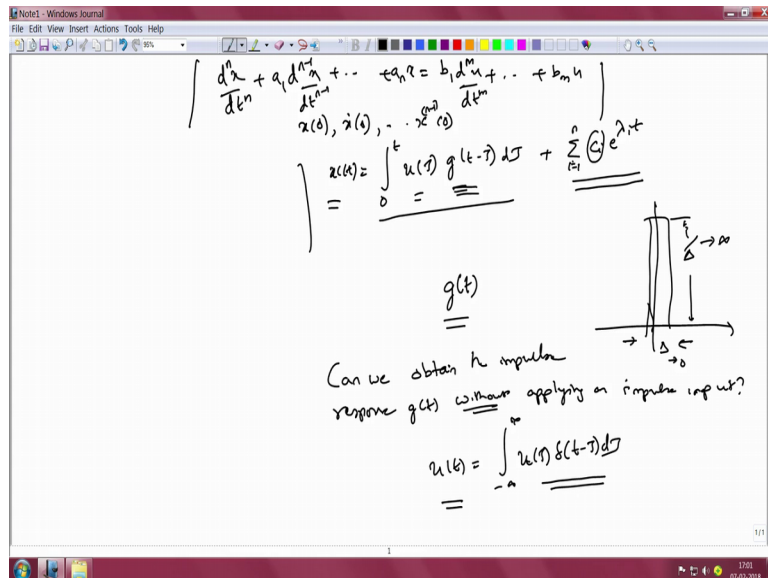 Note1 - Windows Journal
File Edit View Insert Actions Tools Help
95%
dⁿx/dtⁿ + a₁ dⁿ⁻¹x/dtⁿ⁻¹ + ·· + aₙx = b₁ dᵐu/dtᵐ + ·· + bₘ u
x(0), ẋ(0), ·· x⁽ⁿ⁻¹⁾(0)
x(t) = ∫₀ᵗ u(τ) g(t-τ) dτ + Σᵢ₌₁ⁿ Cᵢ e^λᵢt
1/Δ → ∞
g(t)
Δ
→0
Can we obtain the impulse
response g(t) without applying an impulse input?
u(t) = ∫₋∞^∞ u(τ) δ(t-τ) dτ
1/1
1
17:01
07-02-2018